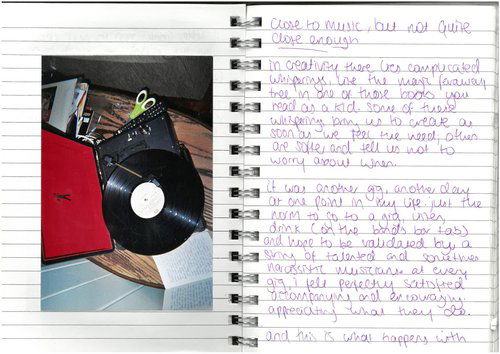 Close to music, but not quite
close enough
in creativity there lies complicated
whisperings, like the magic faraway
tree in one of those books you
read as a kid. some of these
whisperings bring us to create as
soon as we feel the need, others
are softer and tell us not to
worry about when.
it was another gig, another day
at one point in my life. just the
norm to go to a gig, listen,
drink (on the bands bar tab)
and hope to be validated by a
string of talented and sometimes
narcissistic musicians at every
gig. i felt perfectly satisfied
accompanying and encouraging,
appreciating what they do.
and this is what happens with